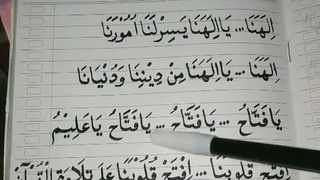 اِلٰهَنَا ... يَااِلٰهَنَا يَسِرْلَنَا اُمُوْرَنَا
اِلٰهَنَا ... يَااِلٰهَنَا مِنْ دِيْنِنَا وَدُنْيَانَا
يَافَتَّاحُ ... يَافَتَّاحُ ... يَافَتَّاحُ يَاعَلِيْمُ
اِفْتَحْ قُلُوْبَنَا ... اِفْتَحْ قُلُوْبَنَا عَلَى تِلَاوَةِ الْقُرْآنِ